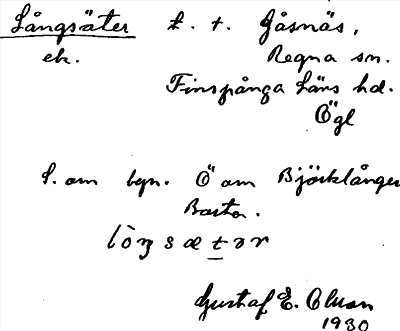 Långsäter t. t. Gåsnäs,
ek. Regna sn.
Finspånga Läns hd.
Ögl
S. om byn. Ö om Björklången
lò̀ŋsætər
Gustaf E. Olsson
1930